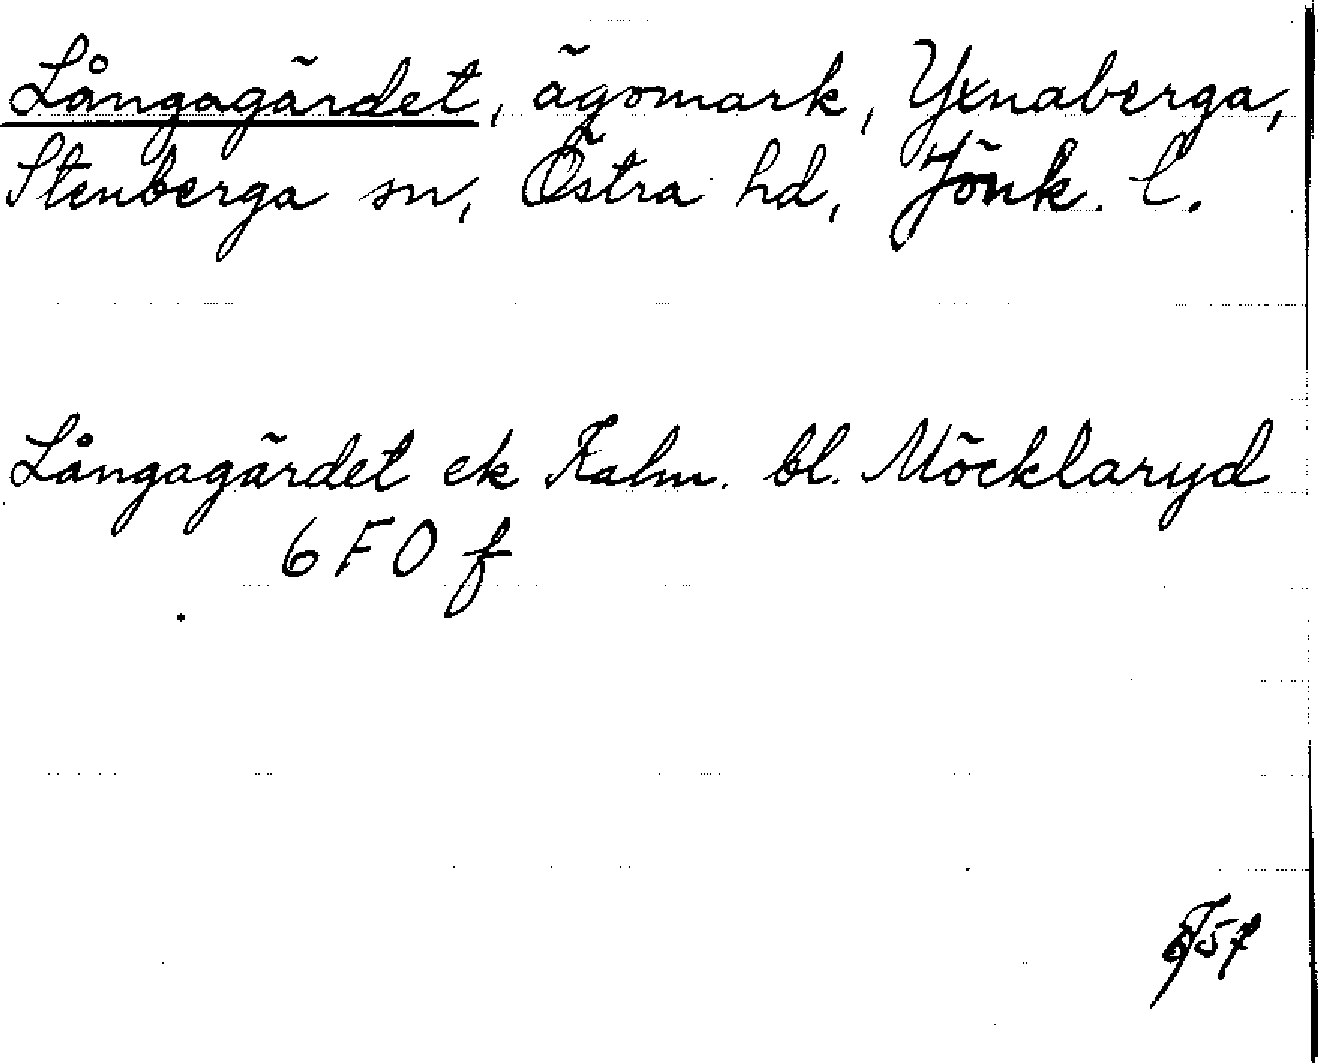 Långagärdet, ägomark, Yxnaberga,
Stenberga sn, Östra hd, Jönk. l.
Långagärdet ek Kalm. bl. Möcklaryd
6 F O f